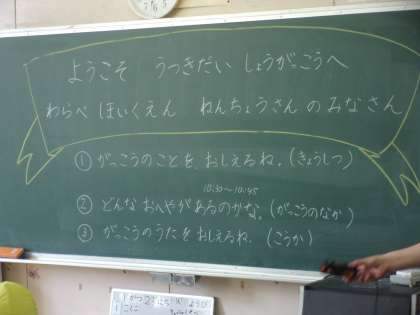 ようこそ うつきだい しょうがっこうへ
わらべ ほいくえん ねんちょうさん の みなさん
① がっこうのことを、おしえるね。(きょうしつ)
10:30～10:45
② どんな おへやが あるのかな。(がっこうのなか)
③ がっこうのうたを おしえるね。(こうか)